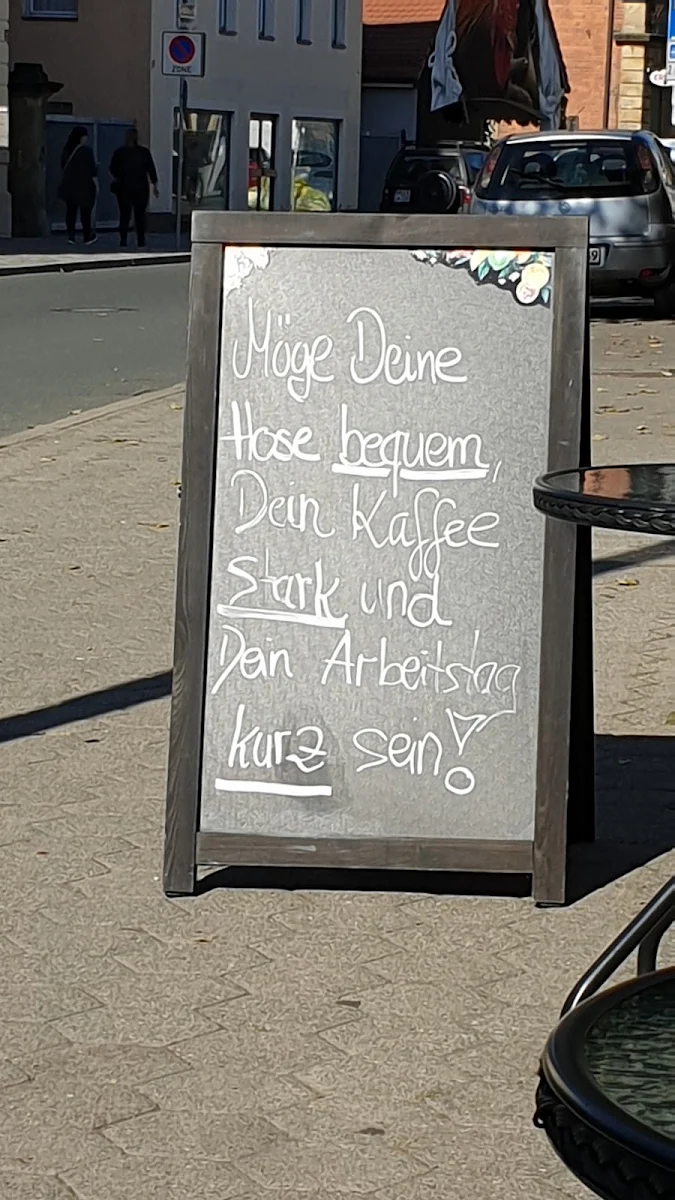 ZONE
Möge Deine
Hose bequem,
Dein Kaffee
Stark und
Dein Arbeitstag
kurz sein!